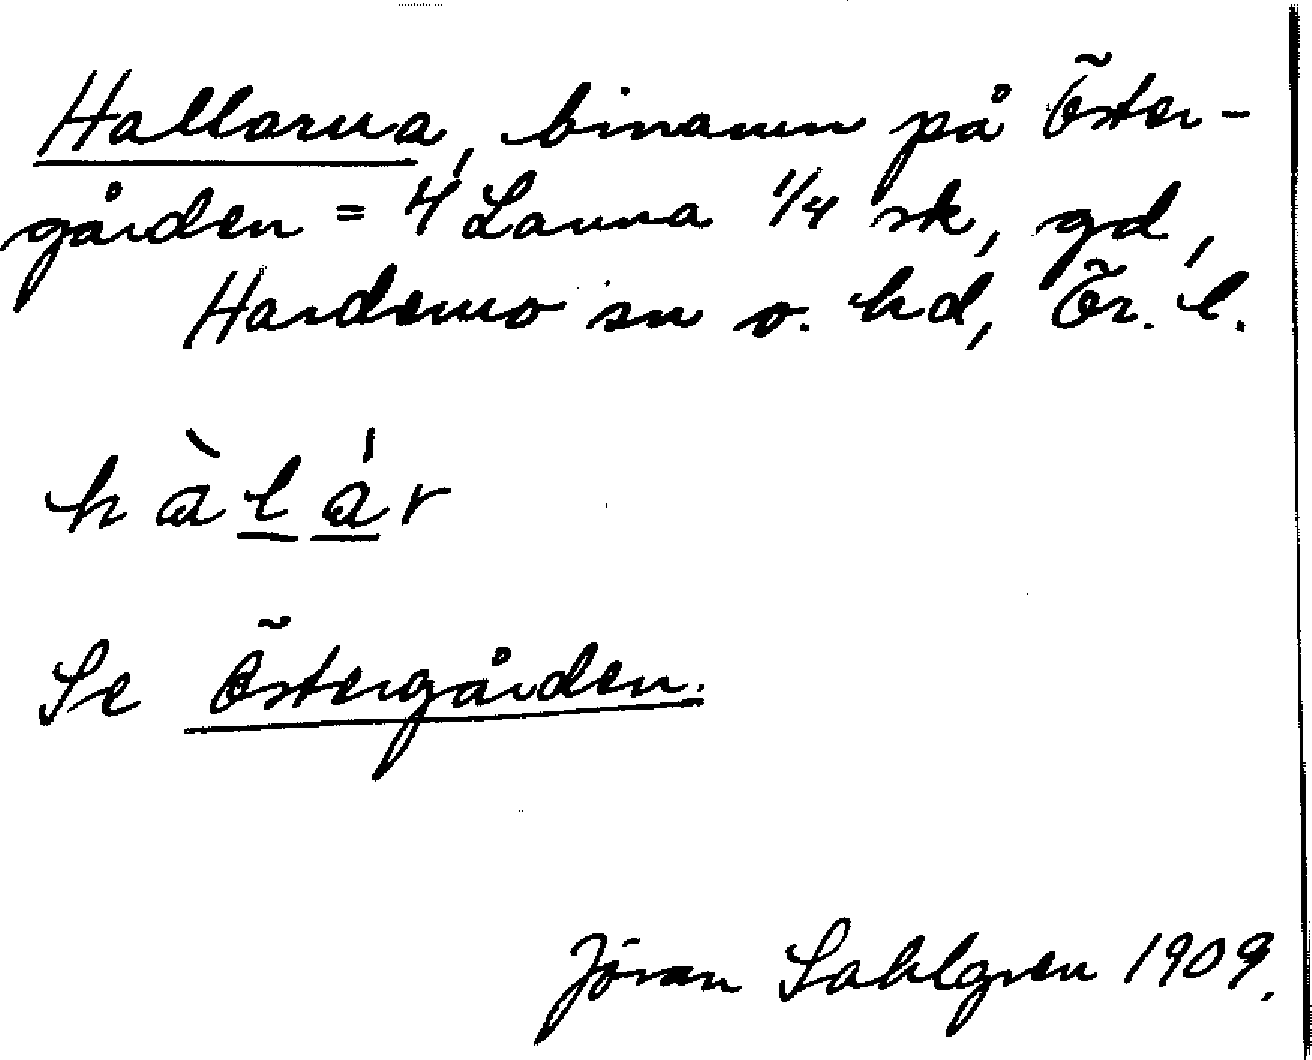 Hallarna, binamn på Öster-
gården = 4 Lanna 1/4 sk, gd,
Hardemo sn o. hd, Ör. l.
hàlár
Se Östergården.
Jöran Sahlgren 1909.